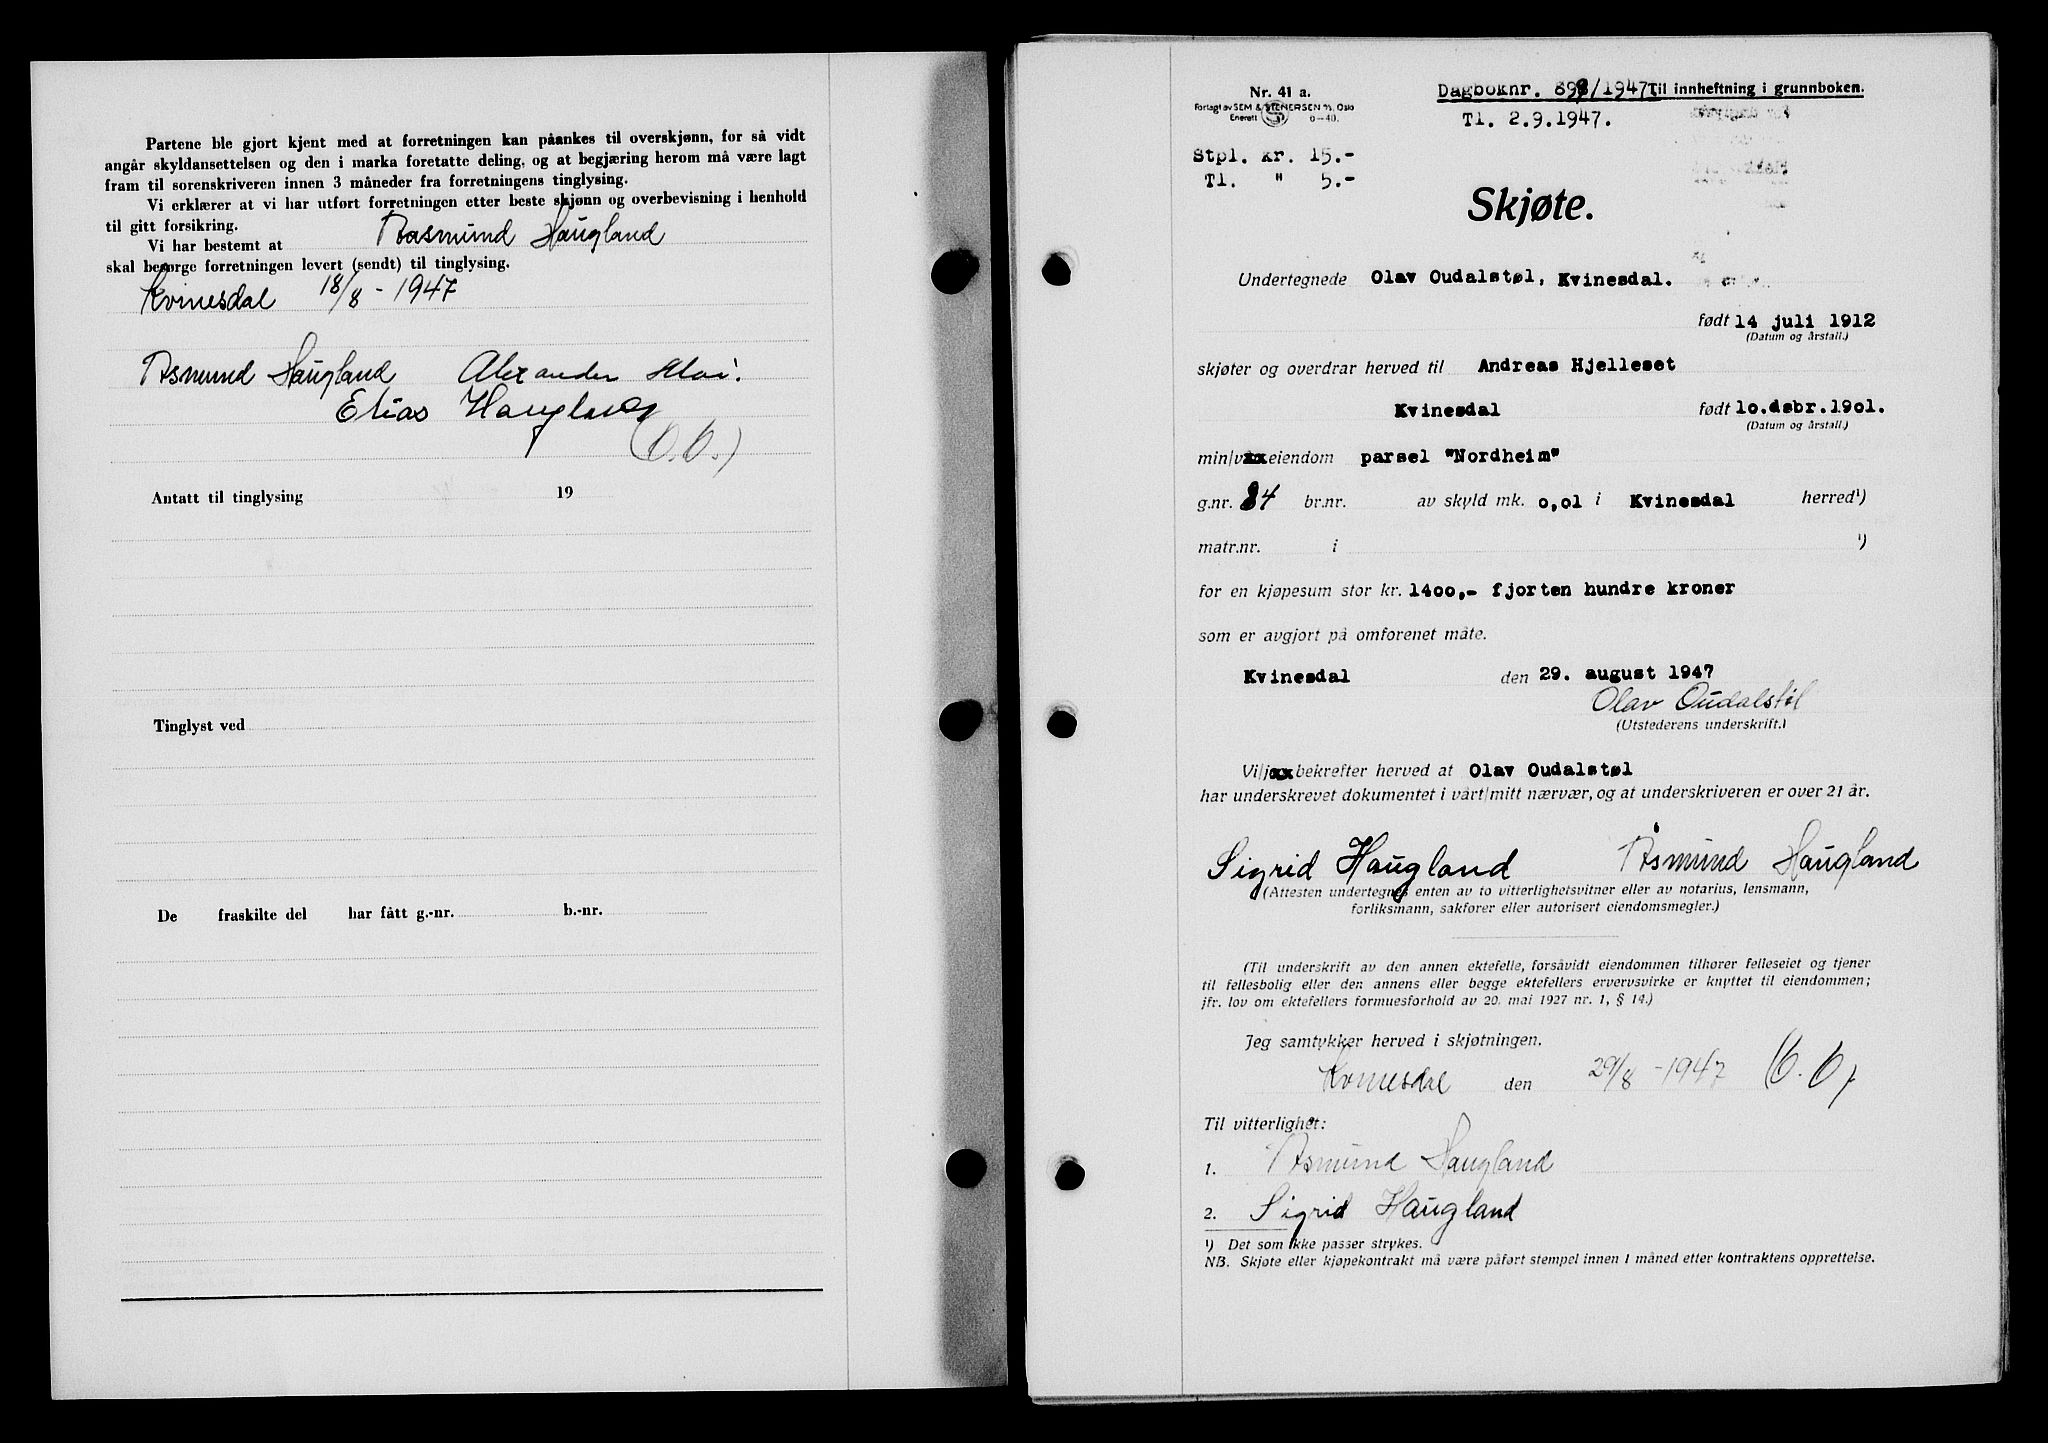 Partene ble gjort kjent med at forretningen kan påankes til overskjønn, for så vidt
angår skyldansettelsen og den i marka foretatte deling, og at begjæring herom må være lagt
fram til sorenskriveren innen 3 måneder fra forretningens tinglysing.
Vi erklærer at vi har utført forretningen etter beste skjønn og overbevisning i henhold
til gitt forsikring.
Vi har bestemt at Rasmund Haugland
skal besørge forretningen levert (sendt) til tinglysing.
Kvinesdal 18/8 - 1947
Asmund Haugland Alexander
Elias Haugland
(O.O.)
Antatt til tinglysing 19
Tinglyst ved
De fraskilte del har fått g.-nr. b.-nr.
Nr. 41 a.
Forlagt av SEM & STENERSEN A/S, Oslo
Enerett 6-40.
Dagboknr. 898/1947 Til innheftning i grunnboken.
Tl. 2.9.1947.
Stpl. kr. 15.-
Tl. " 5.-
Skjøte.
Undertegnede Olav Oudalstøl, Kvinesdal.
født 14 juli 1912
(Datum og årstall.)
skjøter og overdrar herved til Andreas Hjelleset
Kvinesdal født 10.dsbr.1901.
(Datum og årstall.)
min/vxx eiendom parsel "Nordheim"
g.nr. 84 br.nr. av skyld mk. 0,01 i Kvinesdal herred¹)
matr.nr. i ¹)
for en kjøpesum stor kr. 1400,- fjorten hundre kroner
som er avgjort på omforenet måte.
Kvinesdal den 29. august 1947
Olav Oudalstøl
(Utstederens underskrift.)
Vi/jxx bekrefter herved at Olav Oudalstøl
har underskrevet dokumentet i vårt/mitt nærvær, og at underskriveren er over 21 år.
Sigrid Haugland Åsmund Haugland
(Attesten undertegnes enten av to vitterlighetsvitner eller av notarius, lensmann,
forliksmann, sakfører eller autorisert eiendomsmegler.)
(Til underskrift av den annen ektefelle, forsåvidt eiendommen tilhører felleseiet og tjener
til fellesbolig eller den annens eller begge ektefellers ervervsvirke er knyttet til eiendommen;
jfr. lov om ektefellers formuesforhold av 20. mai 1927 nr. 1, § 14.)
Jeg samtykker herved i skjøtningen.
Kvinesdal den 29/8 - 1947 (O.O.)
Til vitterlighet:
1. Åsmund Haugland
2. Sigrid Haugland
¹) Det som ikke passer strykes.
NB. Skjøte eller kjøpekontrakt må være påført stempel innen 1 måned etter kontraktens opprettelse.